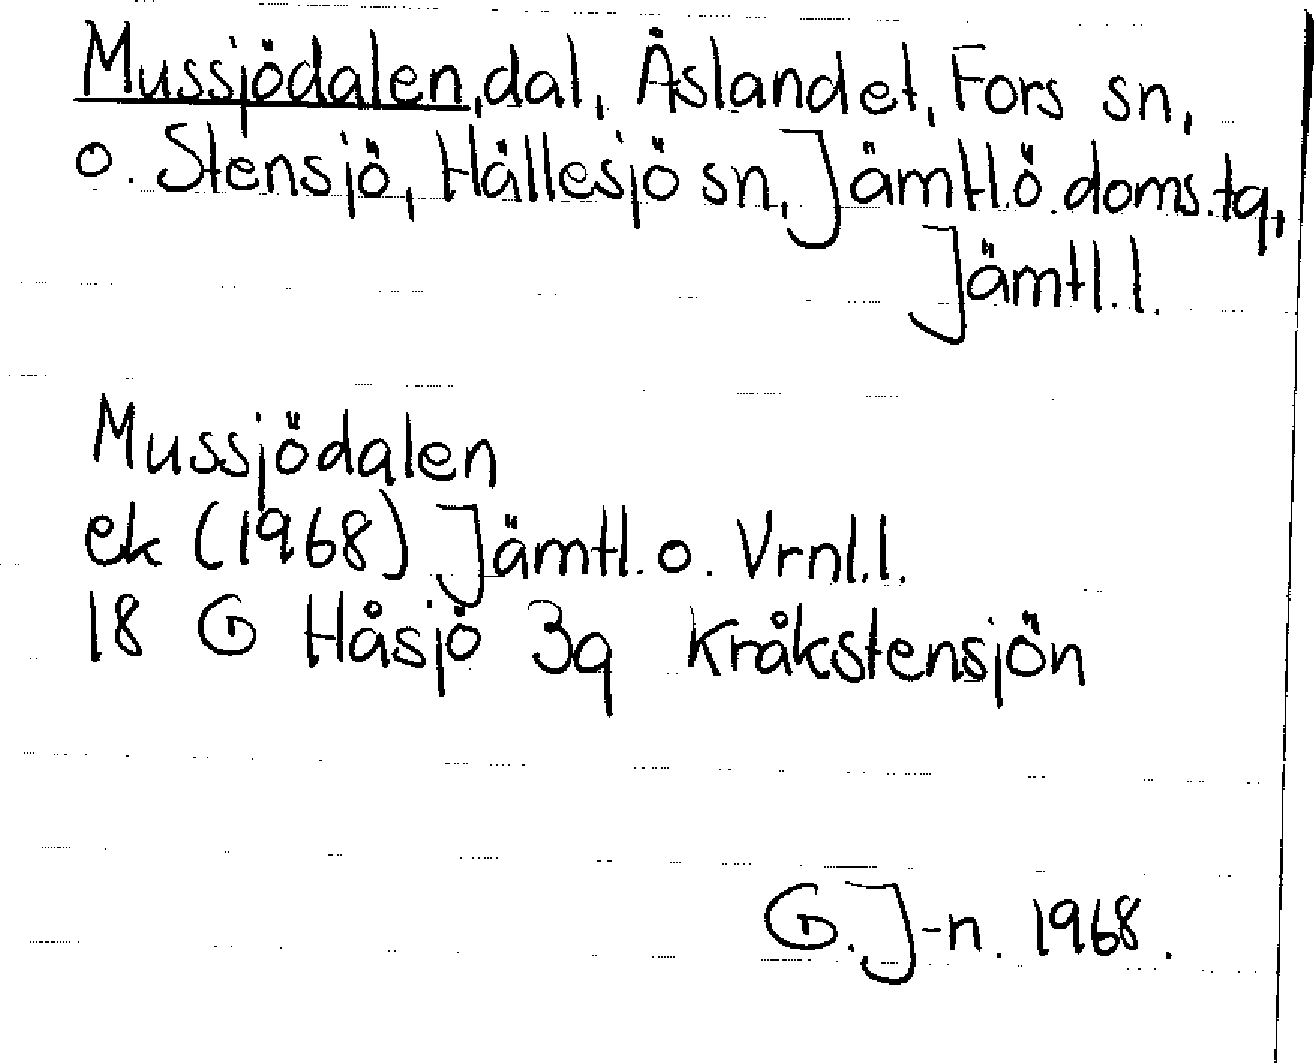 Mussjödalen, dal, Åslandet, Fors sn,
o. Stensjö, Hällesjö sn, Jämtl.ö. doms.tg,
Jämtl. l.
Mussjödalen
ek (1968) Jämtl. o. Vrnl.l.
18 G Håsjö 3g Kråkstensjön
G. J-n. 1968.